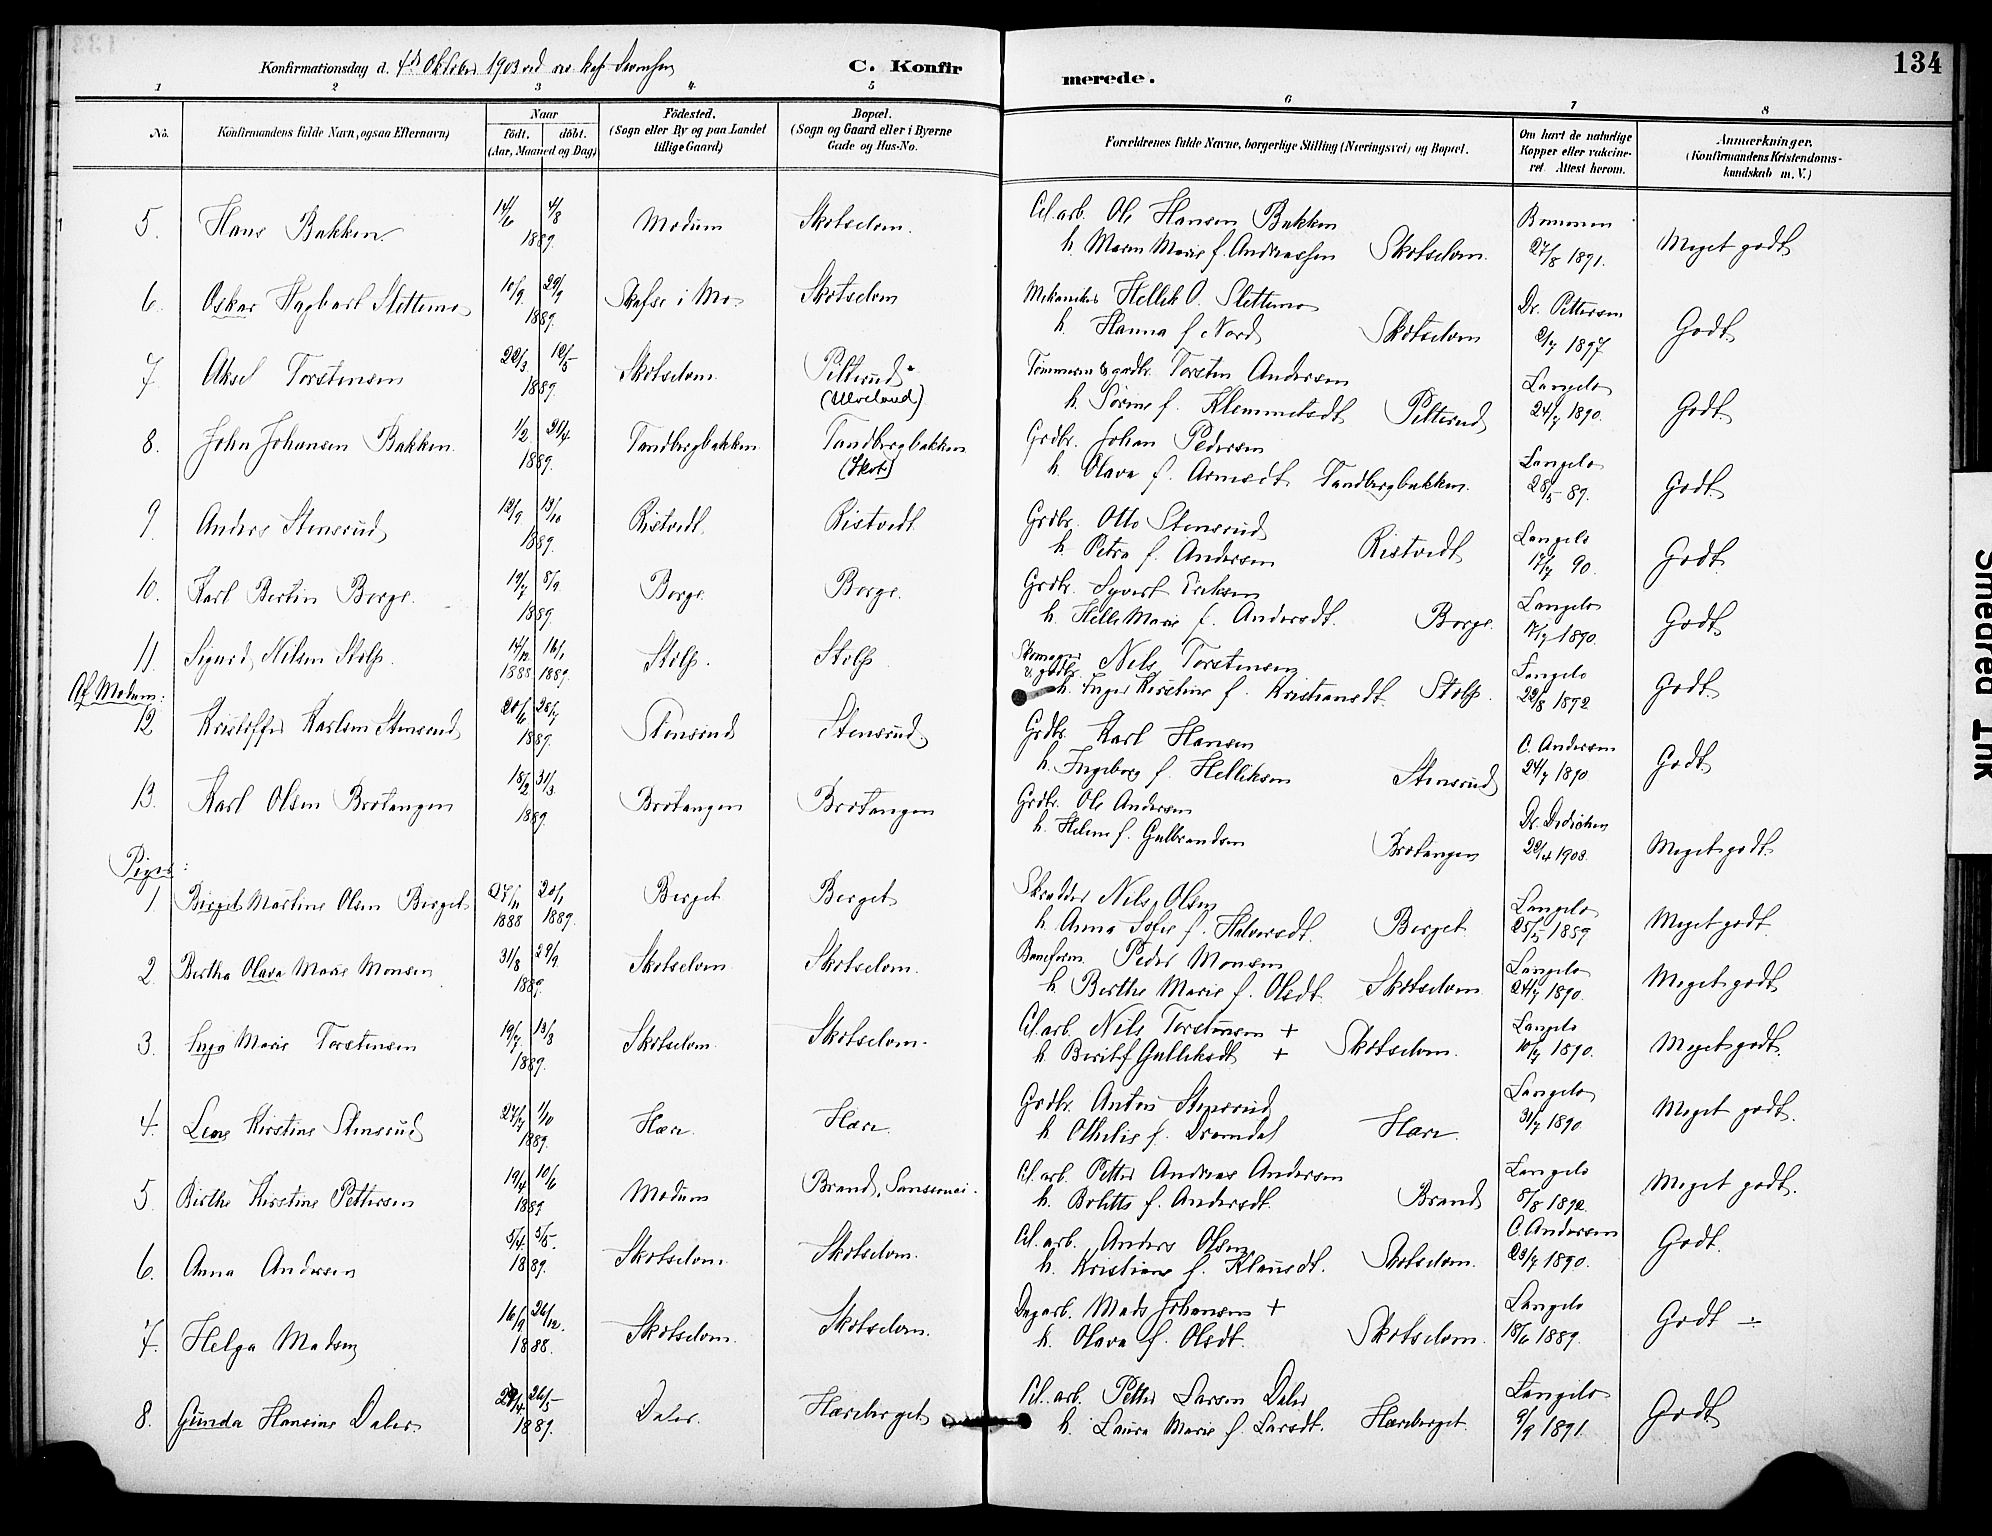 134
Konfirmationsdag d. 4de Oktober 1903 ved
C. Konfirmerede.
1 2 3 4 5 6 7 8
No.
Konfirmandens fulde Navn, ogsaa Efternavn)
Naar
födt. döbt.
(Aar, Maaned og Dag)
Födested.
(Sogn eller By og paa Landet
tillige Gaard)
Bopæl.
(Sogn og Gaard eller i Byerne
Gade og Hus-No.
Forældrenes fulde Navne, borgerlige Stilling (Næringsvei) og Bopæl.
Om havt de naturlige
Kopper eller vakcine-
ret. Attest herom.
Anmærkninger.
(Konfirmandens Kristendoms-
kundskab m. V.)
5. Hans Bakken. 14/6 4/8 1889. Modum Skotselven. Cel. arb. Ole Hansen Bakken
h. Maren Marie f. Andreassen Skotselven. 27/8 1891. Meget godt
6. Oskar Hagbart Slettemo 10/9 29/9 1889. Skafse i Mo Skotselven Mekaniker Hellik O. Slettemo
h. Hanna f. Nord Skotselven Dr. Pettersen 2/7 1897 Godt
7. Aksel Torstensen 22/3 12/5 1889. Skotselven Pelterud
(Ulveland) Tømmerm. & grdbr. Torsten Andersen
h. Sørine f. Klemmetsdt. Pelterud Langelo 24/7 1890. Godt
8. John Johansen Bakken. 1/2 21/4 1889. Tandbergbakken Tandbergbakken
(Skots) Grdbr. Johan Pedersen
h. Olava f. Arnesdt. Tandbergbakken. Langelo 28/5 89. Godt
9. Anders Stensrud 12/9 13/10 1889. Ristvedt. Ristvedt Grdbr. Otto Stensrud
h. Petra f. Andersen Ristvedt Langelo 17/7 90. Godt
10. Karl Bertin Borge. 19/7 8/9 1889. Borge. Borge. Grdbr. Syvert Eriksen
h. Helle Marie f. Andersdt. Borge. Langelo 17/7 1890. Godt
11. Sigurd Nilsen Stolp. 14/12 1888 16/1 1889. Stolp. Stolp. Skomager & grdbr. Nils Torstensen
h. Inger Kirstine f. Kristiansdt. Stolp. Langelo 22/8 1892 Godt
Af Modum:
12 Kristoffer Karlsen Stensrud 20/6 28/7 1889. Stensrud Stensrud Grdbr. Karl Hansen
h. Ingeborg f. Helliksen Stensrud C. Andersen 24/7 1890 Godt
13. Karl Olsen Brotangen 18/2 31/3. 1889. Brotangen Brotangen Grdbr. Ole Andersen
h. Helene f. Gulbrandsen Brotangen Dr. Dedichen 22/4 1903. Meget godt.
Piger:
1. Birgit Martine Olsen Berget 27/11 1888 20/1 1889. Berget Berget Skrædder Nils Olsen
h. Anna Sofie f. Halvorsdt. Berget. Langelo 25/5 1889 Meget godt.
2. Bertha Olava Marie Monsen 31/8 29/9 1889. Skotselven. Skotselven. Baneform. Peder Monsen
h. Berthe Marie f. Olsdt. Skotselven Langelo 24/7 1890. Meget godt
3. Inga Marie Torstensen 19/7 13/8 1889. Skotselven. Skotselven. Cel. arb. Nils Torstensen +
h. Berit f. Gulliksdt + Skotselven. Langelo 10/7 1890. Meget godt.
4. Lene Kirstine Stensrud 27/7 1/10 1889. Hære. Hære. Grdbr. Anton Stensrud
h. Othelie f. Dramdal Hære. Langelo 31/7 1890 Meget godt.
5 Birthe Kirstine Pettersen 19/4 10/6 1889 Modum Brand, Cel. arb. Petter Andreas Andersen
h. Bolette f. Andersdt. Brand Langelo 8/8 1892. Meget godt.
6. Anna Andersen 5/4 5/5. 1889. Skotselven. Skotselven. Cel. arb. Anders Olsen
h. Kristiane f. Klausdt. Skotselven. C. Andersen 23/7 1890. Godt.
7. Helga Madsen 16/9 26/12. 1888. Skotselven. Skotselven. Dagarb. Mads Johansen +
h. Olava f. Olsdt. Skotselven. Langelo 18/6 1889. Godt ÷
8. Gunda Hansine Daler 26/5 1889. Daler. Hæreberget Cel. arb. Petter Larsen Daler
h. Laura Marie f. Larsdt. Hæreberget. Langelo 9/9 1891. Godt
Smeared Ink